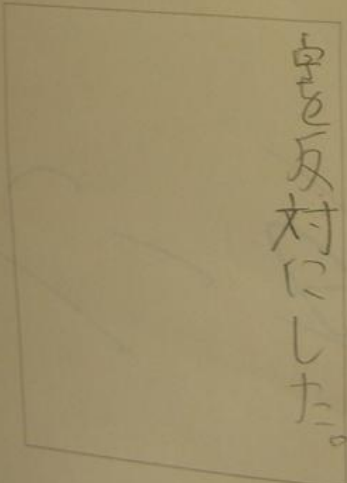 字を反対にした。